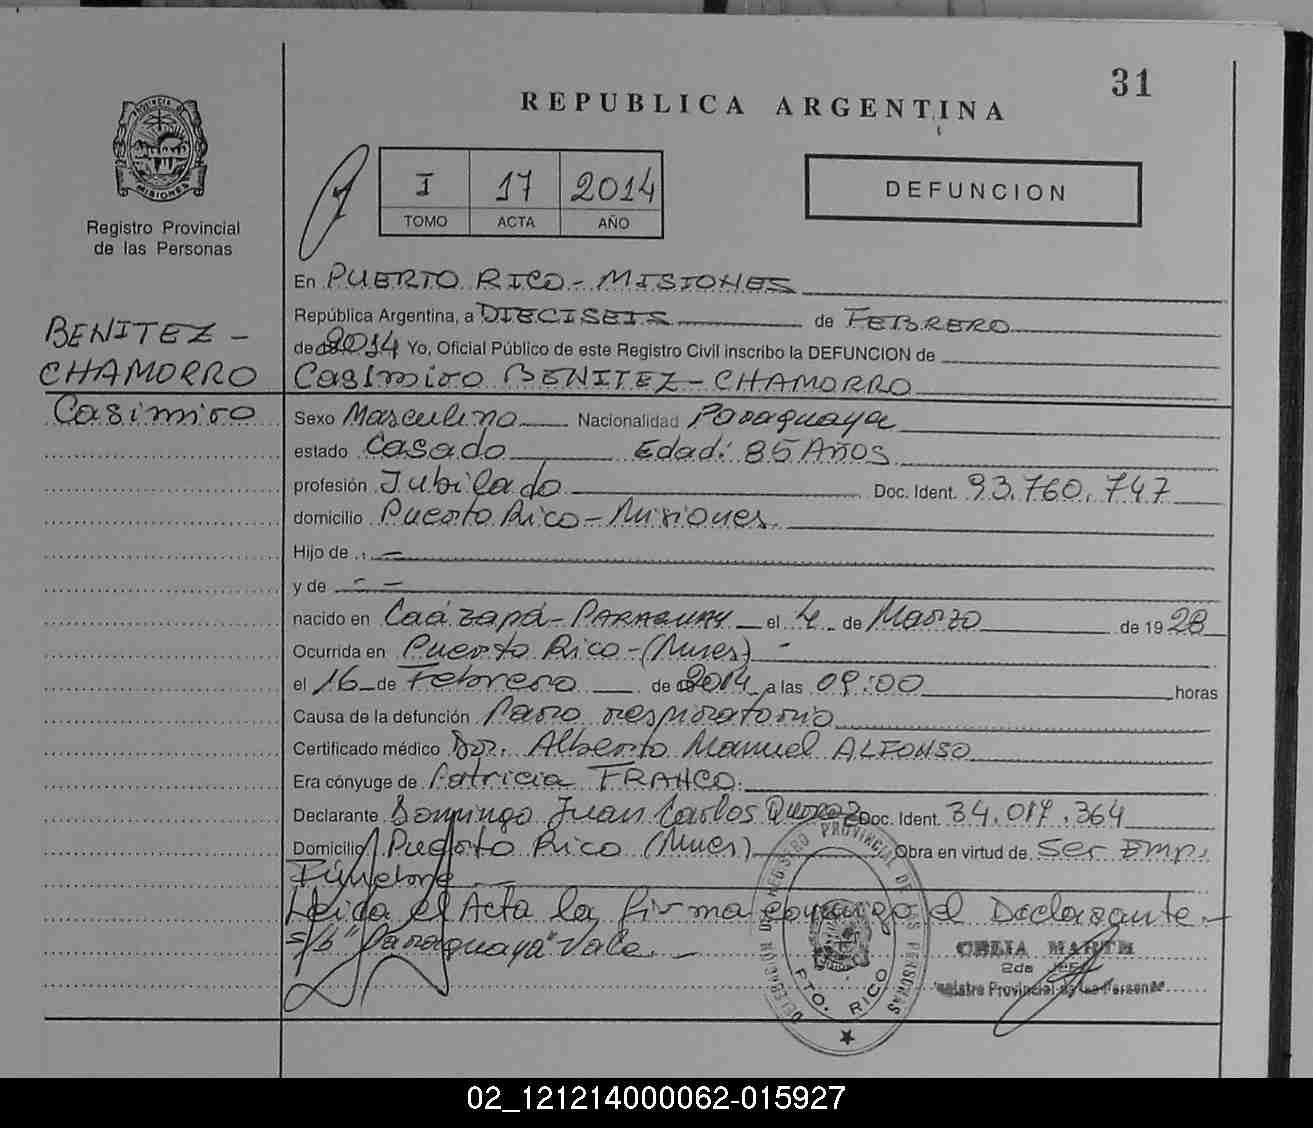 31
REPUBLICA ARGENTINA
PROVINCIA DE
MISIONES
Registro Provincial
de las Personas
I 17 2014
TOMO ACTA AÑO
DEFUNCION
BENITEZ -
CHAMORRO
Casimiro
En PUERTO RICO - MISIONES
República Argentina, a DIECISEIS de FEBRERO
de 2014 Yo, Oficial Público de este Registro Civil inscribo la DEFUNCION de
Casimiro BENITEZ - CHAMORRO
Sexo Masculino Nacionalidad Paraguaya
estado Casado Edad: 85 Años
profesión Jubilado Doc. Ident. 93.760.747
domicilio Puerto Rico - Misiones
Hijo de -
y de - -
nacido en Caázapá - PARAGUAY el 4 de Marzo de 1928
Ocurrida en Puerto Rico - (Mnes) -
el 16 de Febrero de 2014 a las 09:00 horas
Causa de la defunción Paro respiratorio
Certificado médico Dr. Alberto Manuel ALFONSO
Era cónyuge de Patricia FRANCO
Declarante Domingo Juan Carlos Doc. Ident. 34.017.364
Domicilio Puerto Rico (Mnes) Obra en virtud de Ser Emp.
Fúnebre
Leida el Acta la firma conmigo el Declarante -
s/b "Paraguaya" Vale. -
DELEGACION DE REGISTRO PROVINCIAL DE LAS PERSONAS
PTO. RICO
CELIA
Registro Provincial de las Personas
02_121214000062-015927